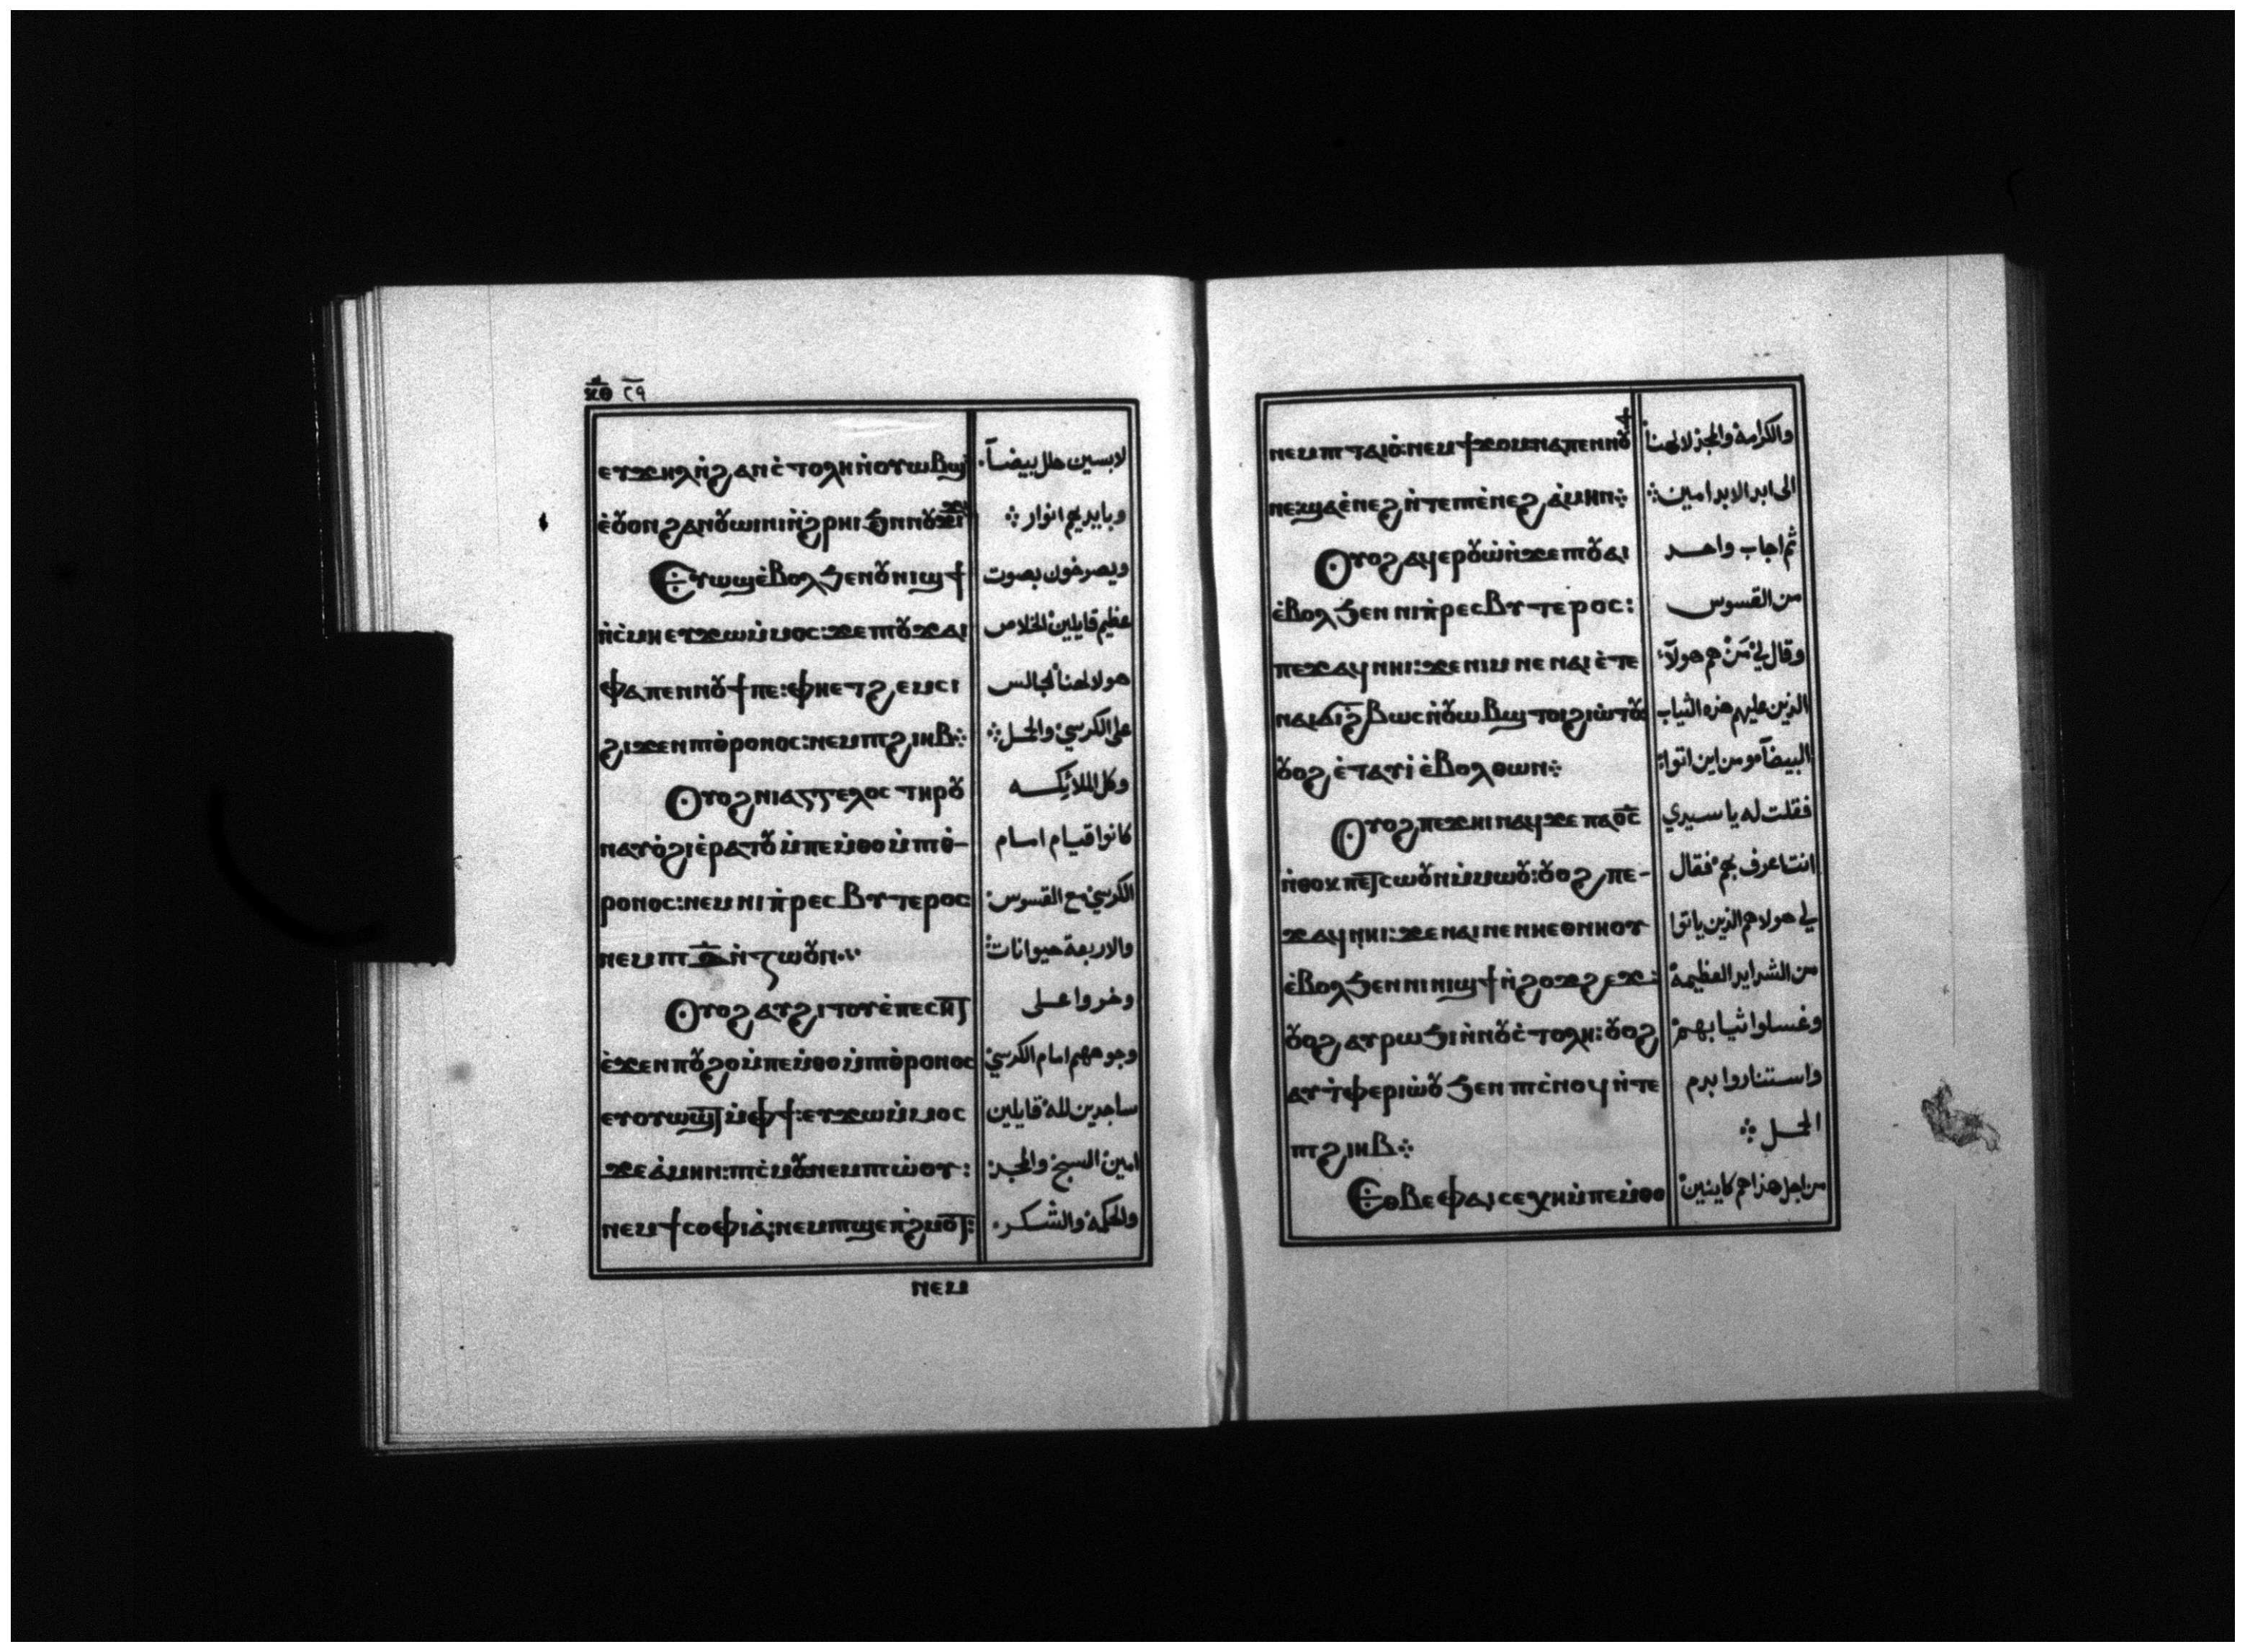 ⲕⲑ ٢٩
ⲉⲩϫⲏⲗ ⲛ̀ϩⲁⲛⲥ̀ⲧⲟⲗⲏ ⲛ̀ⲟⲩⲱⲃϣ
لابسين حلل بيضاً.
ⲉ̀ⲟⲩⲟⲛ ϩⲁⲛⲟⲩⲱⲓⲛⲓ ⲛ̀ϩ̀ⲣⲏⲓ ϧⲉⲛ ⲛⲟⲩϫⲓϫ
وبايديهم انوار ⁘
Ⲉⲩⲱϣ ⲉ̀ⲃⲟⲗ ϧⲉⲛ ⲟⲩⲛⲓϣϯ
ويصرخون بصوت
ⲛ̀ⲥ̀ⲙⲏ ⲉⲩϫⲱ ⲙ̀ⲙⲟⲥ: ϫⲉ ⲡⲓⲟⲩϫⲁⲓ
عظيم قايلين الخلاص
ⲫⲁ ⲡⲉⲛⲛⲟⲩϯ ⲡⲉ: ⲫⲏⲉⲧϩⲉⲙⲥⲓ
هو لالهنا الجالس
ϩⲓϫⲉⲛ ⲡⲓⲑ̀ⲣⲟⲛⲟⲥ: ⲛⲉⲙ ⲡⲓϩⲓⲏⲃ⁘
على الكرسي والحمل⁘
Ⲟⲩⲟϩ ⲛⲓⲁⲅⲅⲉⲗⲟⲥ ⲧⲏⲣⲟⲩ
وكل الملائكه
ⲛⲁⲩⲟ̀ϩⲓ ⲉ̀ⲣⲁⲧⲟⲩ ⲙ̀ⲡⲉⲙ̀ⲑⲟ ⲙ̀ⲡⲓⲑ̀-
كانوا قيام امام
ⲣⲟⲛⲟⲥ: ⲛⲉⲙ ⲛⲓⲡ̀ⲣⲉⲥⲃⲩⲧⲉⲣⲟⲥ
الكرسي مع القسوس:
ⲛⲉⲙ ⲡⲓⲇ̅ ⲛ̀ⲍⲱⲟⲩⲛ
والاربعة حيوانات
Ⲟⲩⲟϩ ⲁⲩϩⲓⲧⲟⲩ ⲉ̀ⲡⲉⲥⲏⲧ
وخروا على
ⲉ̀ϫⲉⲛ ⲡⲟⲩϩⲟ ⲙ̀ⲡⲉⲙ̀ⲑⲟ ⲙ̀ⲡⲓⲑ̀ⲣⲟⲛⲟⲥ
وجوههم امام الكرسي
ⲉⲩⲟⲩⲱϣⲧ ⲙ̀ⲫϯ: ⲉⲩϫⲱ ⲙ̀ⲙⲟⲥ
ساجدين لله قايلين
ϫⲉ ⲁ̀ⲙⲏⲛ: ⲡⲓⲥ̀ⲙⲟⲩ ⲛⲉⲙ ⲡⲓⲱ̀ⲟⲩ:
امين السبح والمجد:
ⲛⲉⲙ ϯⲥⲟⲫⲓⲁ̀: ⲛⲉⲙ ⲡⲓϣⲉⲡϩ̀ⲙⲟⲧ:
والحكمة والشكر.
ⲛⲉⲙ
ⲛⲉⲙ ⲡⲓⲧⲁⲓⲟ̀: ⲛⲉⲙ ϯϫⲟⲙ ⲛⲁ ⲡⲉⲛⲛⲟⲩϯ
والكرامة والمجد لالهنا
ⲛⲉ ϣⲁ ⲉ̀ⲛⲉϩ ⲛ̀ⲧⲉ ⲡⲓⲉ̀ⲛⲉϩ ⲁ̀ⲙⲏⲛ⁘
الى ابد الابد امين⁘
Ⲟⲩⲟϩ ⲁϥⲉⲣⲟⲩⲱ̀ ⲛ̀ϫⲉ ⲡⲓⲟⲩⲁⲓ
ثم اجاب واحد
ⲉ̀ⲃⲟⲗ ϧⲉⲛ ⲛⲓⲡ̀ⲣⲉⲥⲃⲩⲧⲉⲣⲟⲥ:
من القسوس
ⲡⲉϫⲁϥ ⲛⲏⲓ: ϫⲉ ⲛⲓⲙ ⲛⲉ ⲛⲁⲓ ⲉ̀ⲧⲉ
وقال لي من هم هولآء
ⲛⲁⲓϭⲓϩ̀ⲃⲱⲥ ⲛ̀ⲟⲩⲱⲃϣ ⲧⲟⲓ ϩⲓⲱ̀ⲧⲟⲩ
الذين عليهم هذه الثياب
ⲟⲩⲟϩ ⲉ̀ⲧⲁⲩⲓ̀ ⲉ̀ⲃⲟⲗ ⲑⲱⲛ⁘
البيضآ ومن اين اتوا:
Ⲟⲩⲟϩ ⲡⲉϫⲏⲓ ⲛⲁϥ ϫⲉ ⲡⲁⲟ̅ⲥ̅
فقلت له يا سيدي
ⲛ̀ⲑⲟⲕ ⲡⲉⲧⲥⲱⲟⲩⲛ ⲙ̀ⲙⲱⲟⲩ: ⲟⲩⲟϩ ⲡⲉ-
انت اعرف بهم فقال
ϫⲁϥ ⲛⲏⲓ: ϫⲉ ⲛⲁⲓ ⲛⲉ ⲛⲏⲉⲑⲛⲏⲟⲩ
لي هولا هم الذين ياتوا
ⲉ̀ⲃⲟⲗ ϧⲉⲛ ⲛⲓⲛⲓϣϯ ⲛ̀ϩⲟϫϩⲉϫ:
من الشدايد العظيمة
ⲟⲩⲟϩ ⲁⲩⲣⲱϧⲓ ⲛ̀ⲛⲟⲩⲥ̀ⲧⲟⲗⲏ: ⲟⲩⲟϩ
وغسلوا ثيابهم
ⲁⲩⲧ̀ⲫⲉⲣⲓⲱ̀ⲟⲩ ϧⲉⲛ ⲡⲓⲥ̀ⲛⲟϥ ⲛ̀ⲧⲉ
واستناروا بدم
ⲡⲓϩⲓⲏⲃ⁘
الحمل⁘
Ⲉⲑⲃⲉ ⲫⲁⲓ ⲥⲉⲭⲏ ⲙ̀ⲡⲉⲙ̀ⲑⲟ
من اجل هذا هم كاينين